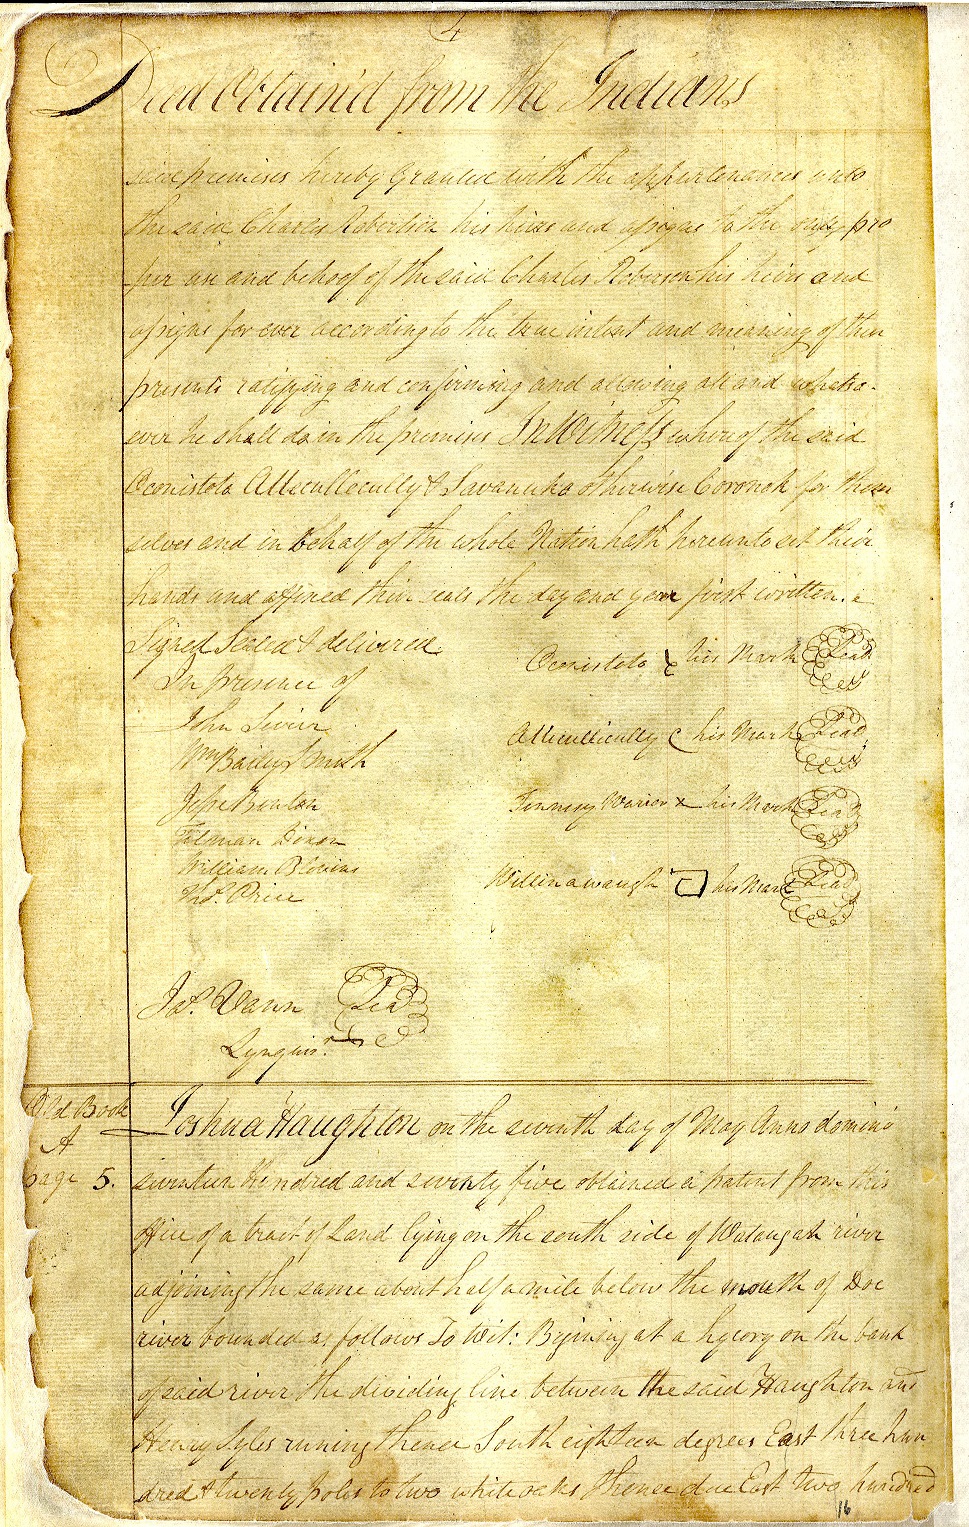 4
Deed Obtain'd from the Indians
said premises hereby Granted with the appurtenances unto
the said Charles Robertson his heirs and assigns to the only pro
per use and behoof of the said Charles Roberson his heirs and
assigns for ever according to the true intent and meaning of these
presents ratifying and confirming and allowing all and whatso-
ever he shall do in the premises In Witness whereof the said
Oconistoto Attecullecully & Savanuka otherwise Coronoh for them
selves and in behalf of the whole Nation hath hereunto set their
hands and affixed their seals the day and year first written.
Signed Sealed & delivered
In presence of
Oconistoto his Mark Seal
John Sevier
Attecullecully his Mark Seal
Wm Bailey Smith
Jesse Benton
Tennesy Warior x his Mark Seal
Tilman Dixon
William Blevins
Willinawaugh his Mark Seal
Thos. Price
Jos. Vann Seal
Lynguist.
Old Book
A
page 5.
Joshua Haughton on the seventh day of May Anno domini
seventeen Hundred and seventy five obtained a patent from this
office of a tract of Land lying on the south side of Wataugah river
adjoining the same about half a mile below the mouth of Doe
river bounded as follows To Wit: Begining at a hycory on the bank
of said river the dividing line between the said Haughton and
Henry Lyles runing thence South eighteen degrees East three hun
dred & twenty poles to two white oaks thence due East two hundred
16